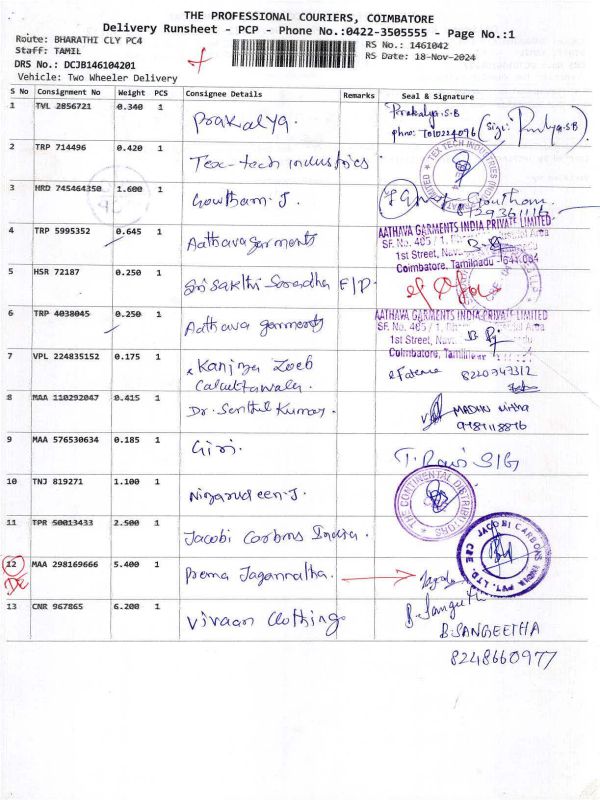 THE PROFESSIONAL COURIERS, COIMBATORE
Delivery Runsheet - PCP - Phone No.:0422-3505555 - Page No.:1
Route: BHARATHI CLY PC4
Staff: TAMIL
DRS No.: DCJB146104201
Vehicle: Two Wheeler Delivery
RS No.: 1461042
RS Date: 18-Nov-2024
S No Consignment No Weight PCS Consignee Details Remarks Seal & Signature
1 TVL 2856721 0.340 1 Prakalya. Prakalya.S.B
2 TRP 714496 0.420 1 Tex-tech industries
TEX TECH INDUSTRIES
3 HRD 745464350 1.600 1 Gowtham.J.
4 TRP 5995352 0.645 1 Aathava garments
AATHAVA GARMENTS INDIA PRIVATE LIMITED
SF. No. 405 / 1,
1st Street,
Coimbatore, Tamilnadu - 641 004
5 HSR 72187 0.250 1 Sri Sakthi
6 TRP 4038045 0.250 1 Aathava garments
AATHAVA GARMENTS INDIA PRIVATE LIMITED
SF. No. 405 / 1,
1st Street,
Coimbatore,
7 VPL 224835152 0.175 1 Zoeb
Calcuttawala. 8220347312
8 MAA 110292047 0.415 1 Dr. Senthil Kumar.
9 MAA 576530634 0.185 1 Giri.
10 TNJ 819271 1.100 1 Nizarudeen.J.
THE CONTINENTAL DISTRIBUTORS
11 TPR 50013433 2.500 1 Jacobi Carbons India.
JACOBI CARBONS INDIA PVT. LTD. CBE
12 MAA 298169666 5.400 1 Prema Jagannatha.
13 CNR 967865 6.200 1 Vivaan Clothing
B.Sangeetha
B.SANGEETHA
8248660977